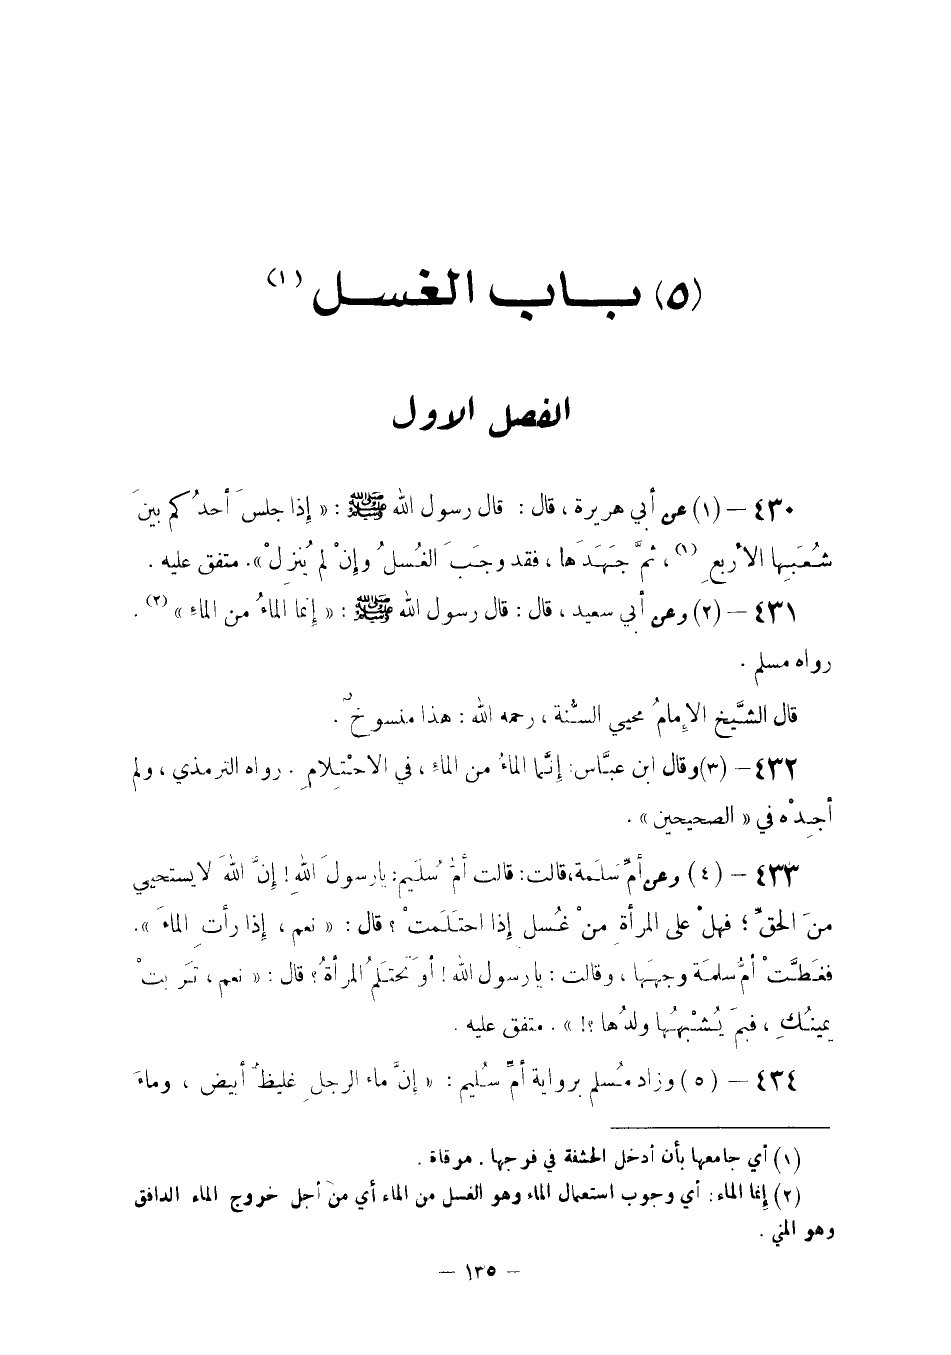 (٥) بــاب الغسل (١)
الفصل الاول
٤٣٠ – (١) عن أبي هريرة ، قال : قال رسول الله ﷺ : « إذا جلسَ أحدُكم بينَ
شُعَبِها الأربعِ (١) ، ثمَّ جَهَدَها ، فقد وجَبَ الغُسلُ وإنْ لم يُنزِلْ ». متفق عليه .
٤٣١ – (٢) وعن أبي سعيد ، قال : قال رسول الله ﷺ : « إنما الماءُ من الماءِ » (٢) .
رواه مسلم .
قال الشَّيخ الإمامُ محيي السنَّة ، رحمه الله : هذا منسوخٌ .
٤٣٢ – (٣) وقال ابن عبَّاس: إنَّما الماءُ من الماءِ ، في الاحْتِلامِ . رواه الترمذي ، ولم
أجِدْه في « الصحيحين » .
٤٣٣ – (٤) وعن أمِّ سَلَمة،قالت: قالت أمُّ سُلَيم: يارسولَ اللهِ! إنَّ اللهَ لايستحيي
منَ الحقِّ ؛ فهلْ على المرأة منْ غُسل إذا احتلَمتْ ؟ قال : « نعم ، إذا رأتِ الماءَ ».
فغَطَّتْ أمُّ سلمَة وجهَها ، وقالت : يارسول الله ! أوَ تحتلِمُ المرأةُ ؟ قال : « نعم ، تَرِبتْ
يمينُكِ ، فبِمَ يُشْبِهُها ولدُها ؟! » . متفق عليه .
٤٣٤ – (٥) وزاد مُسلم برواية أمِّ سُليم : « إنَّ ماء الرجلِ غليظٌ أبيض ، وماءَ
(١) أي جامعها بأن أدخل الحشفة في فرجها . مرقاة .
(٢) إنما الماء : أي وجوب استعمال الماء وهو الغسل من الماء أي من أجل خروج الماء الدافق
وهو المني .
– ١٣٥ –